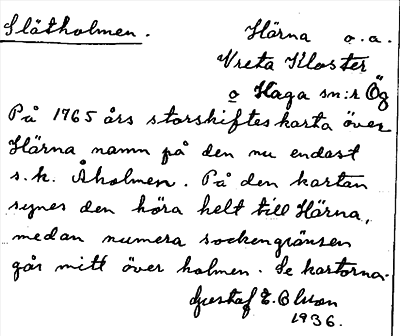 Slätholmen. Härna o.a.
Vreta Kloster
o Haga sn:r Ög
På 1765 års storskifteskarta över
Härna namn på den nu endast
s.k. Åholmen. På den kartan
synes den höra helt till Härna,
medan numera sockengränsen
går mitt över holmen. Se kartorna.
Gustaf E. Olson
1936.